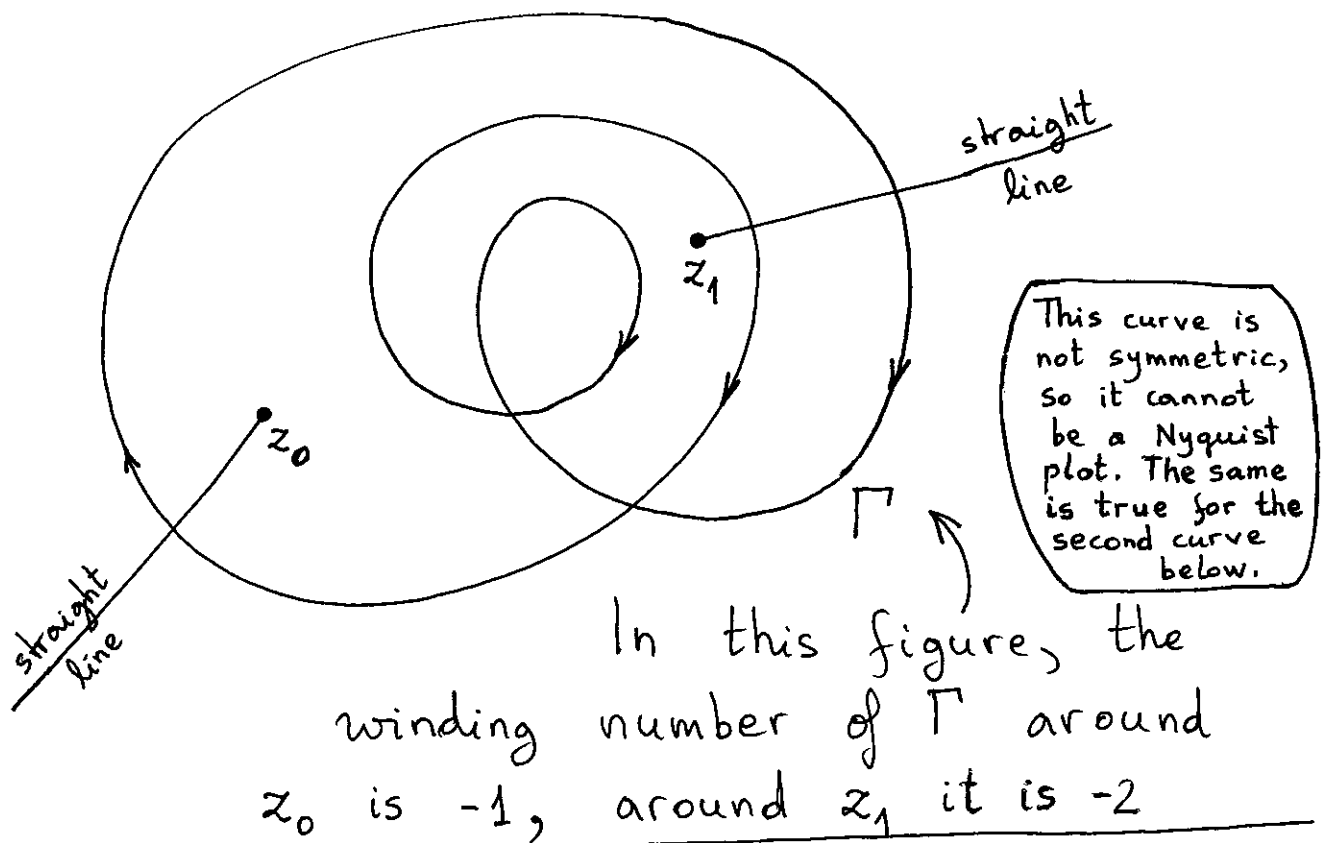 straight
line
z₁
z₀
This curve is
not symmetric,
so it cannot
be a Nyquist
plot. The same
is true for the
second curve
below.
Γ
straight
line
In this figure, the
winding number of Γ around
z₀ is -1, around z₁ it is -2